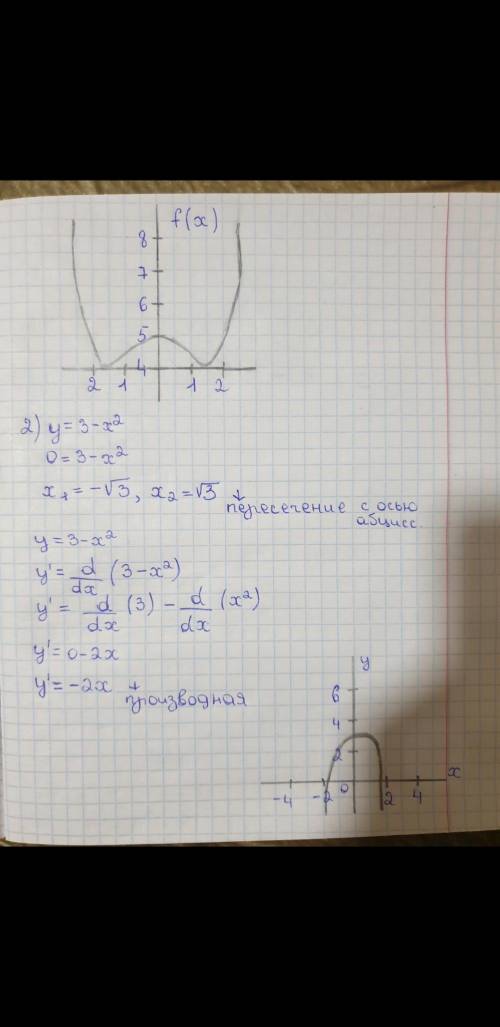 f(x)
8
7
6
5
4
2 1 1 2
2) y = 3 - x²
0 = 3 - x²
x₁ = -√3, x₂ = √3 ↓ пересечение с осью
абцисс.
y = 3 - x²
y' = d/dx (3 - x²)
y' = d/dx (3) - d/dx (x²)
y' = 0 - 2x
y' = -2x ↓ производная
y
6
4
2
x
-4 -2 0 2 4